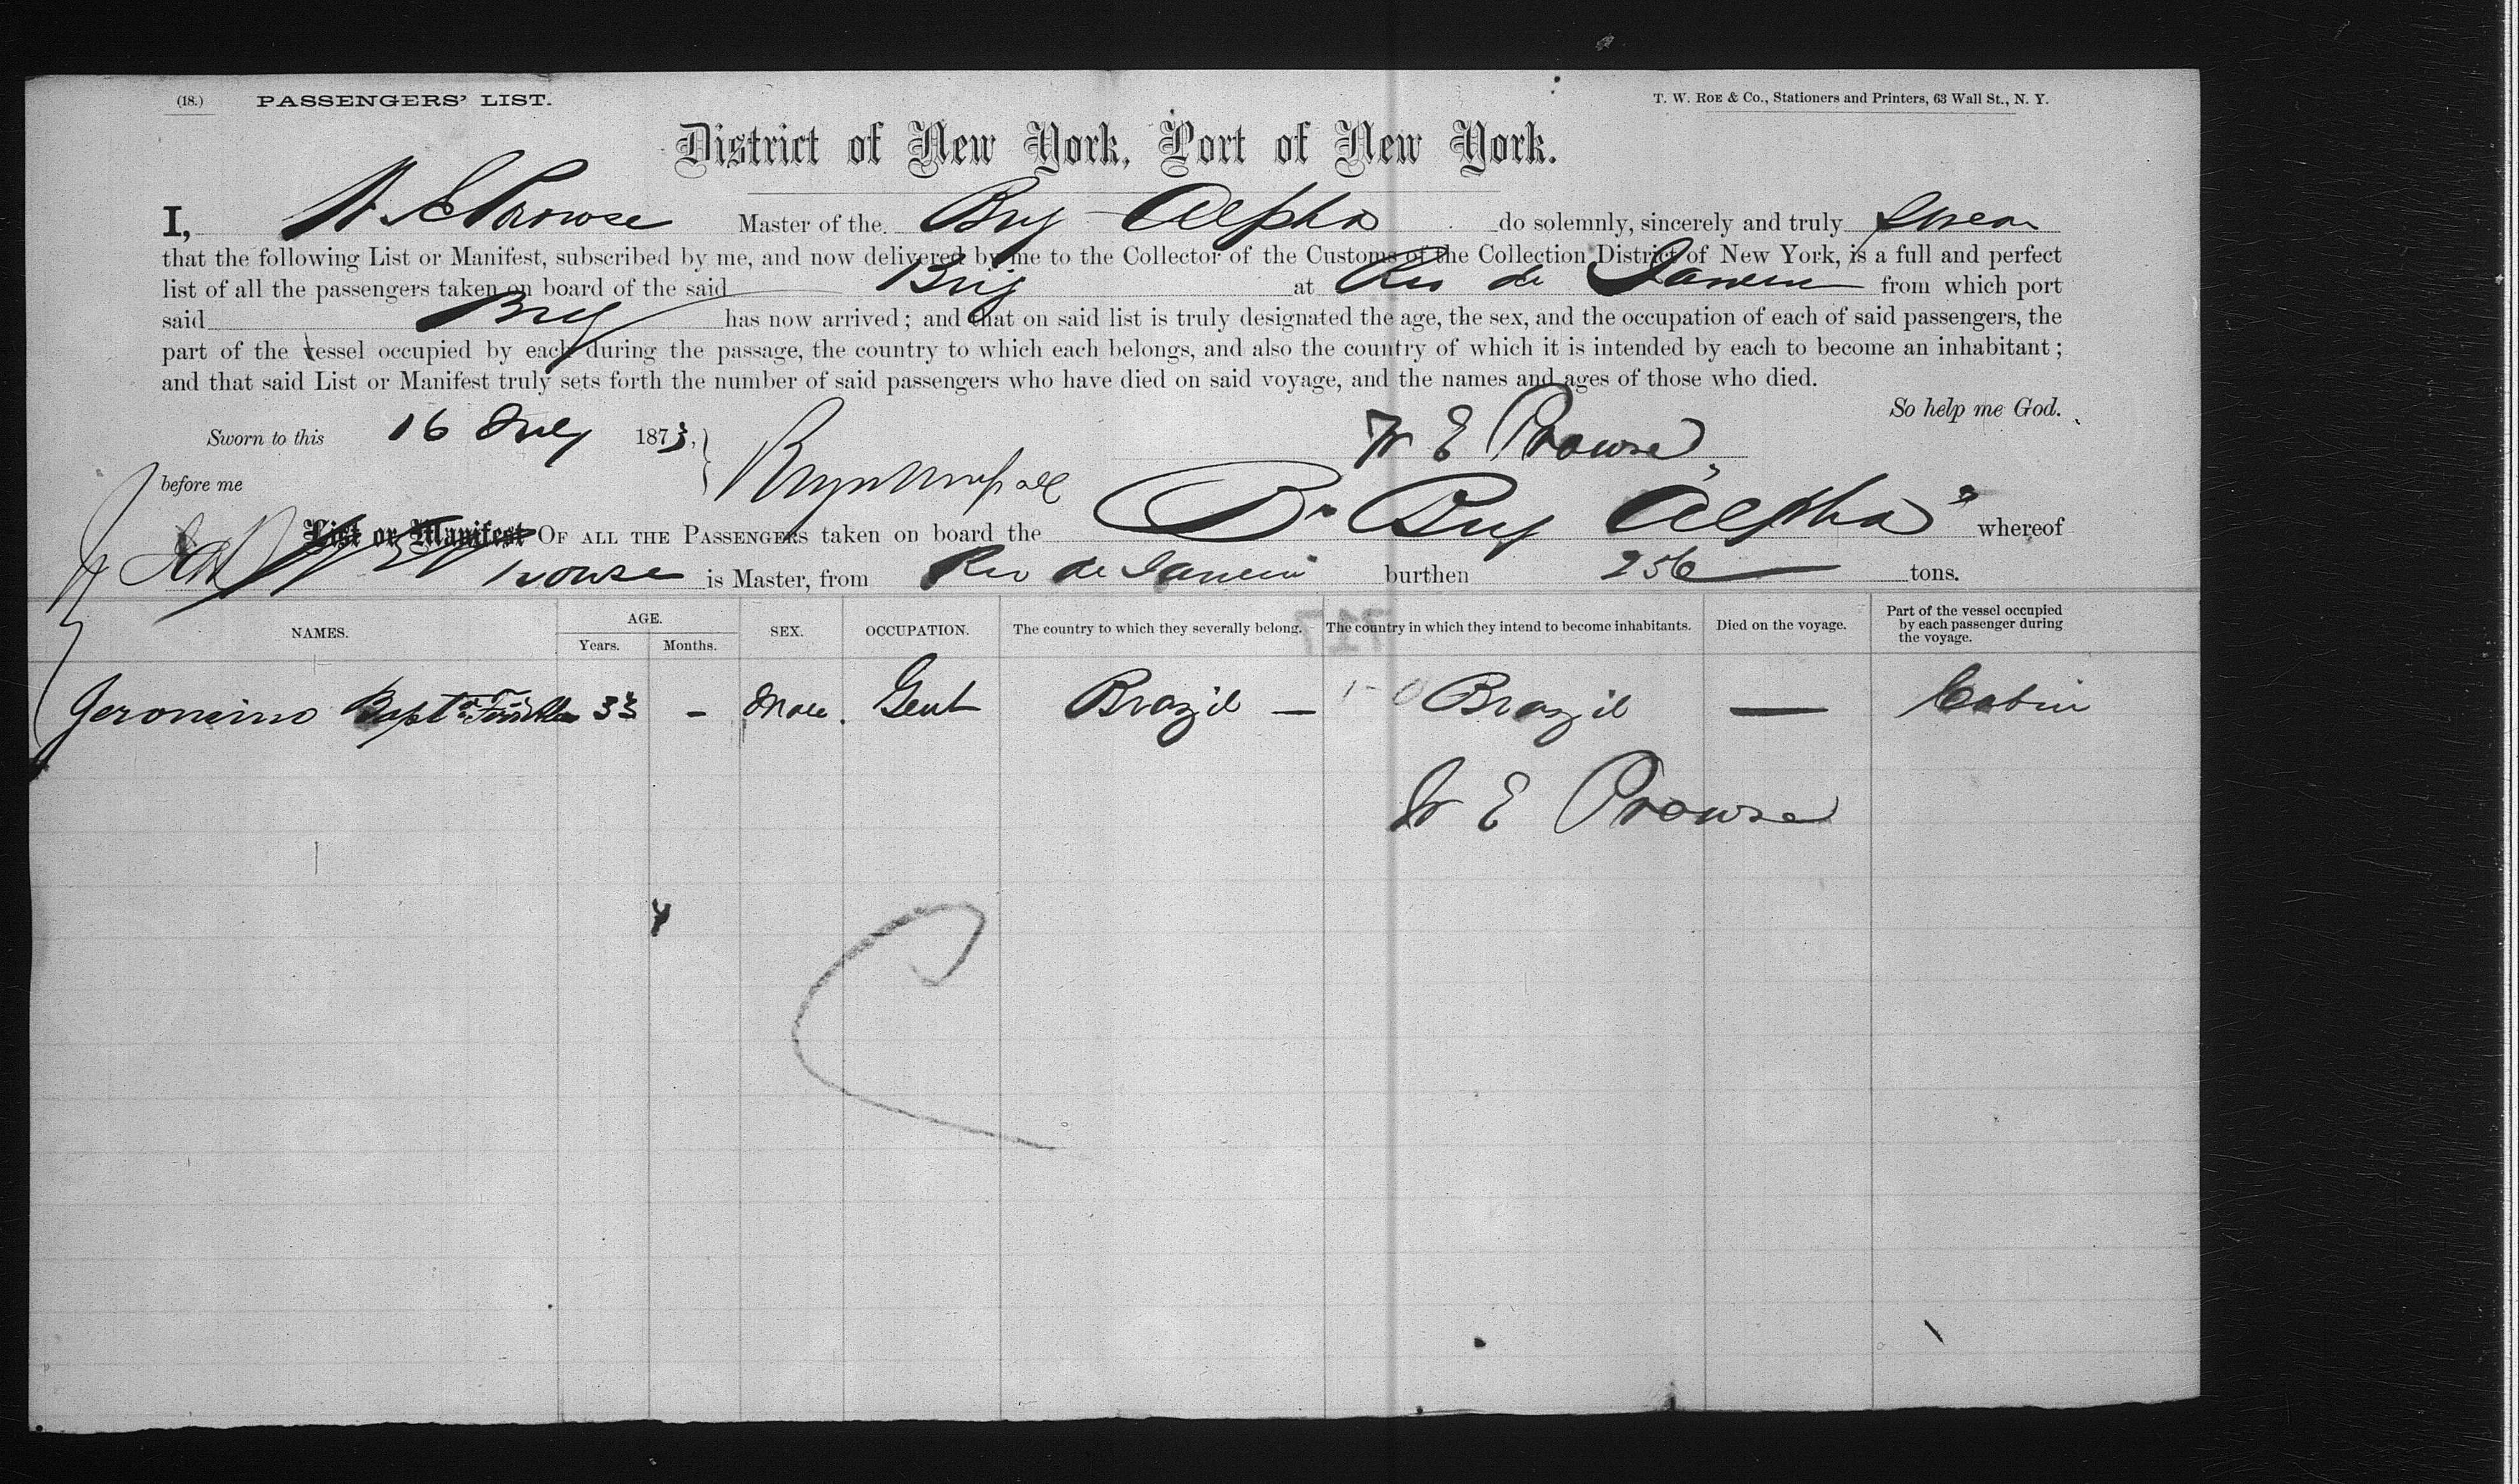 (18.) PASSENGERS' LIST. T. W. ROE & Co., Stationers and Printers, 63 Wall St., N. Y.
District of New York, Port of New York.
I, W. E Prowse Master of the Brig Alpha do solemnly, sincerely and truly swear
that the following List or Manifest, subscribed by me, and now delivered by me to the Collector of the Customs of the Collection District of New York, is a full and perfect
list of all the passengers taken on board of the said Brig at Rio de Janeiro from which port
said Brig has now arrived; and that on said list is truly designated the age, the sex, and the occupation of each of said passengers, the
part of the vessel occupied by each during the passage, the country to which each belongs, and also the country of which it is intended by each to become an inhabitant;
and that said List or Manifest truly sets forth the number of said passengers who have died on said voyage, and the names and ages of those who died.
So help me God.
Sworn to this 16 July 1873, W E Prowse
before me
List or Manifest OF ALL THE PASSENGERS taken on board the Br Brig "Alpha" whereof
W E Prowse is Master, from Rio de Janeiro burthen 256 tons.
NAMES. AGE. Years. Months. SEX. OCCUPATION. The country to which they severally belong. The country in which they intend to become inhabitants. Died on the voyage. Part of the vessel occupied by each passenger during the voyage.
Jeronimo Bapta 33 - Male. Gent Brazil — Brazil — Cabin
W E Prowse